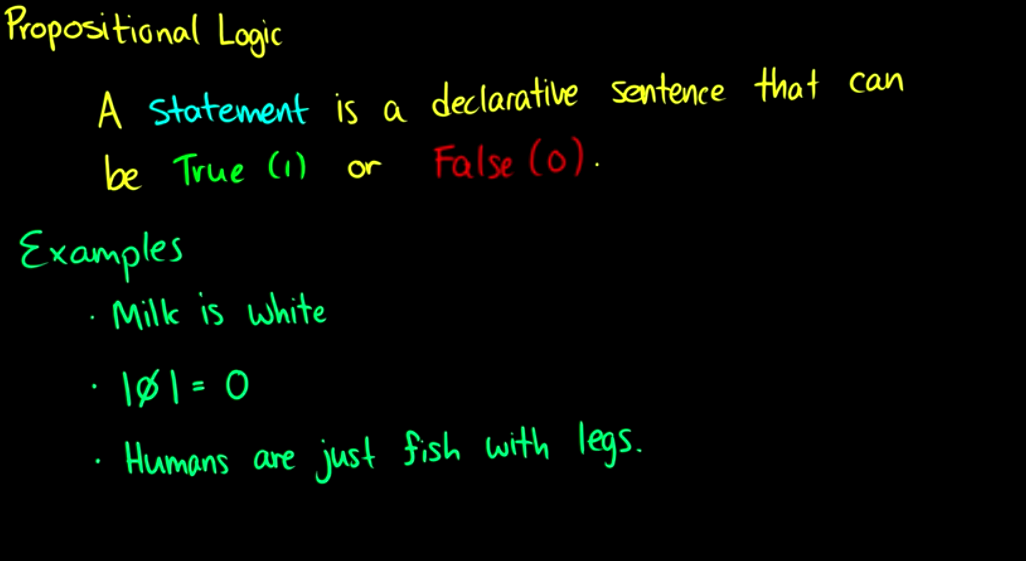 Propositional Logic
A Statement is a declarative sentence that can
be True (1) or False (0).
Examples
· Milk is white
· |∅| = 0
· Humans are just fish with legs.